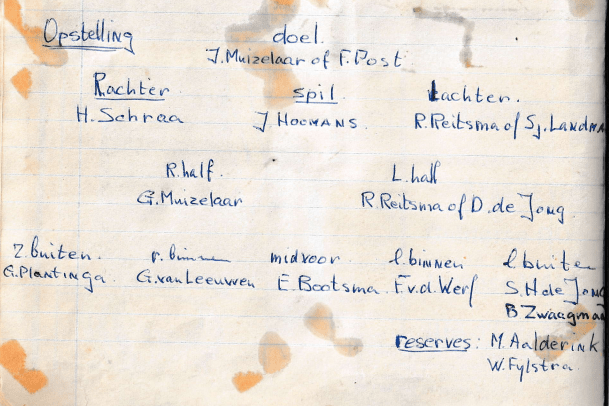 Opstelling doel.
J. Muizelaar of F. Post
R.achter spil. L.achter.
H. Schraa J. HOOMANS. R. Reitsma of Sj. Landma
R.half. L. half
G. Muizelaar R. Reitsma of D. de Jong.
r. buiten. r. binnen midvoor l. binnen l. buiten
G. Plantinga. G. van Leeuwen E. Bootsma. F. v.d. Werf S. H de Jong
B Zwaagman
reserves: M. Aalderink
W. Fylstra.